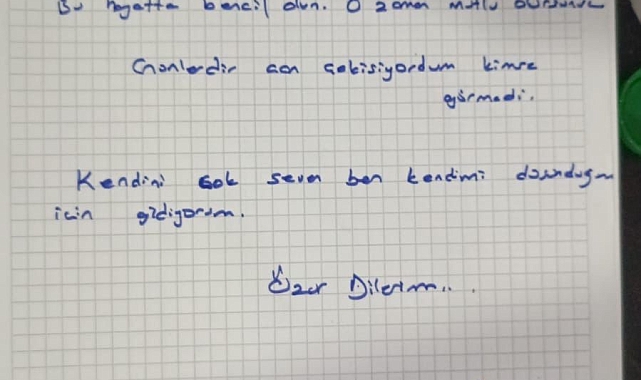 Bu hayatta bencil olun. O zaman mutlu olursunuz
Günlerdir can çekişiyordum kimse
görmedi.
Kendini çok seven ben kendimi düşündüğüm
için gidiyorum.
Özür Dilerim...